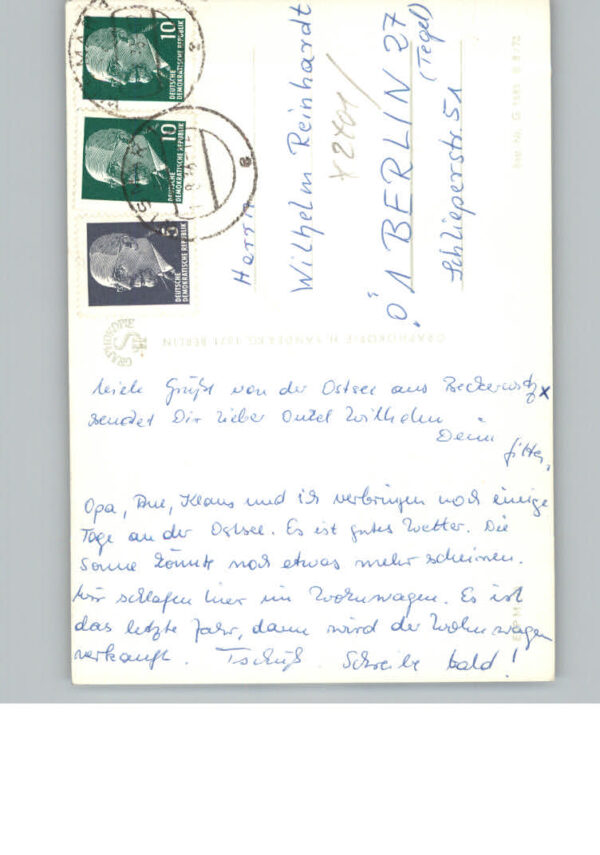 10
DEUTSCHE
DEMOKRATISCHE REPUBLIK
10
DEUTSCHE
DEMOKRATISCHE REPUBLIK
5
DEUTSCHE
DEMOKRATISCHE REPUBLIK
Herrn
Wilhelm Reinhardt
"Ö" 1 BERLIN 27
(Tegel)
Schlieperstr. 51
GRAPHOKOPIE H. SANDER KG 1071 BERLIN
GRAPHOKOPIE
Viele Grüße von der Ostsee aus Beckerwitz x
sendet Dir lieber Onkel Wilhelm
Deine
Opa, Ihr, Klaus und ich verbringen noch einige
Tage an der Ostsee. Es ist gutes Wetter. Die
Sonne könnte noch etwas mehr scheinen.
Wir schlafen hier im Wohnwagen. Es ist
das letzte Jahr, dann wird der Wohnwagen
verkauft. Tschüß. Schreibe bald!